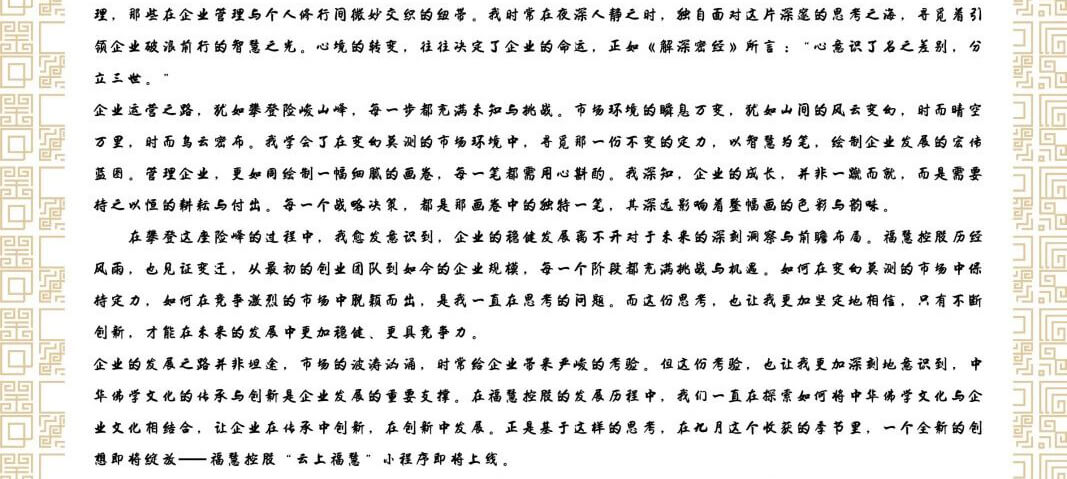 理，那些在企业管理与个人修行间微妙交织的纽带。我时常在夜深人静之时，独自面对这片深邃的思考之海，寻觅着引
领企业破浪前行的智慧之光。心境的转变，往往决定了企业的命运，正如《解深密经》所言：“心意识了名之差别，分
立三世。”
企业运营之路，犹如攀登险峻山峰，每一步都充满未知与挑战。市场环境的瞬息万变，犹如山间的风云变幻，时而晴空
万里，时而乌云密布。我学会了在变幻莫测的市场环境中，寻觅那一份不变的定力，以智慧为笔，绘制企业发展的宏伟
蓝图。管理企业，更如同绘制一幅细腻的画卷，每一笔都需用心斟酌。我深知，企业的成长，并非一蹴而就，而是需要
持之以恒的耕耘与付出。每一个战略决策，都是那画卷中的独特一笔，其深远影响着整幅画的色彩与韵味。
在攀登这座险峰的过程中，我愈发意识到，企业的稳健发展离不开对于未来的深刻洞察与前瞻布局。福慧控股历经
风雨，也见证变迁，从最初的创业团队到如今的企业规模，每一个阶段都充满挑战与机遇。如何在变幻莫测的市场中保
持定力，如何在竞争激烈的市场中脱颖而出，是我一直在思考的问题。而这份思考，也让我更加坚定地相信，只有不断
创新，才能在未来的发展中更加稳健、更具竞争力。
企业的发展之路并非坦途，市场的波涛汹涌，时常给企业带来严峻的考验。但这份考验，也让我更加深刻地意识到，中
华佛学文化的传承与创新是企业发展的重要支撑。在福慧控股的发展历程中，我们一直在探索如何将中华佛学文化与企
业文化相结合，让企业在传承中创新，在创新中发展。正是基于这样的思考，在九月这个收获的季节里，一个全新的创
想即将绽放——福慧控股“云上福慧”小程序即将上线。